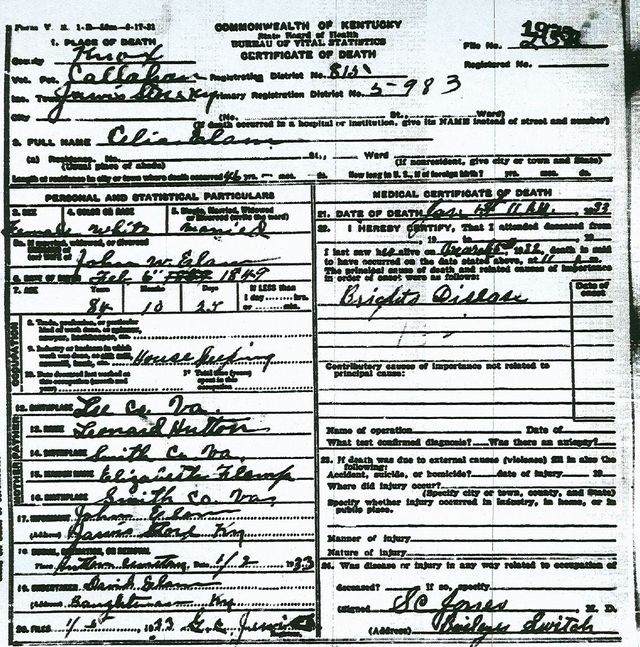 Form V. S. 1-B
COMMONWEALTH OF KENTUCKY
State Board of Health
BUREAU OF VITAL STATISTICS
CERTIFICATE OF DEATH
File No.
Registered No.
1. PLACE OF DEATH
County Knox
Vot. Pct. Callahan Registrating District No. 815
Inc. Town Jarvis Store Ky Primary Registration District No. 5-983
City (No. St., Ward)
(If death occurred in a hospital or institution, give its NAME instead of street and number)
2. FULL NAME Celia Elam
(a) Residence. No. St., Ward
(Usual place of abode) (If nonresident, give city or town and State)
Length of residence in city or town where death occurred 46 yrs. mos. ds. How long in U. S., if of foreign birth? yrs. mos. ds.
PERSONAL AND STATISTICAL PARTICULARS
3. SEX 4. COLOR OR RACE 5. Single, Married, Widowed
or Divorced (write the word)
Female White Married
5a. If married, widowed, or divorced
John W. Elam
6. DATE OF BIRTH Feb 6 1849
7. AGE Years Months Days If LESS than
1 day hrs.
or min.
84 10 25
OCCUPATION
8. Trade, profession, or particular
kind of work done, as spinner,
sawyer, bookkeeper, etc.
9. Industry or business in which
work was done, as silk mill,
sawmill, bank, etc. House Keeping
10. Date deceased last worked at
this occupation (month and
year)
11. Total time (years)
spent in this
occupation
12. BIRTHPLACE Lee Co. Va.
FATHER
13. NAME Leonard Hutton
14. BIRTHPLACE Smith Co. Va.
MOTHER
15. MAIDEN NAME Elizabeth
16. BIRTHPLACE Smith Co. Va.
17. INFORMANT John Elam
(Address) Jarvis Store Ky
18. BURIAL, CREMATION, OR REMOVAL
Place Hutton Cemetery Date 1/2 1933
19. UNDERTAKER David Elam
(Address) Ky
20. FILED 1933 G. C. Jarvis
Registrar.
MEDICAL CERTIFICATE OF DEATH
21. DATE OF DEATH Jan 1st 11 AM. 1933
22. I HEREBY CERTIFY, That I attended deceased
from 19 to 19
I last saw her alive on 1932, death is said
to have occurred on the date stated above, at 11 m.
The principal cause of death and related causes of importance
in order of onset were as follows:
Date of
onset
Brights Disease
Contributory causes of importance not related to
principal cause:
Name of operation Date of
What test confirmed diagnosis? Was there an autopsy?
23. If death was due to external causes (violence) fill in also the
following:
Accident, suicide, or homicide? date of injury 19
Where did injury occur?
(Specify city or town, county, and State)
Specify whether injury occurred in industry, in home, or in
public place.
Manner of injury
Nature of injury
24. Was disease or injury in any way related to occupation of
deceased? If so, specify
(Signed) SC Jones M. D.
(Address) Baileys Switch